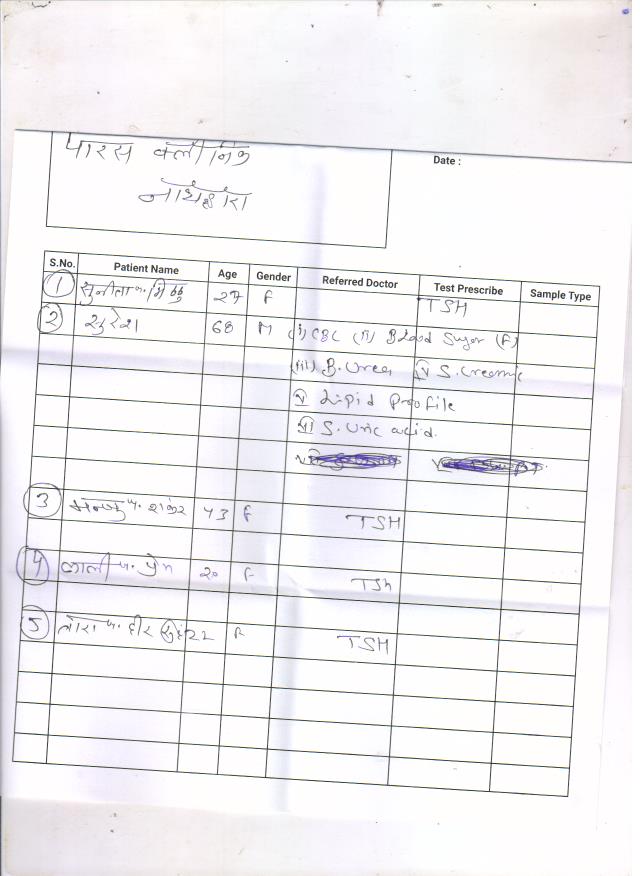 पारस क्लीनिक
नाथद्वारा
Date :
S.No. Patient Name Age Gender Referred Doctor Test Prescribe Sample Type
1 सुनीता F TSH
2 सुरेश 68 M (i) CBC (ii) Blood Sugar (F)
(iii) B. Urea iv S. Creatnic
v Lipid Profile
vi S. Uric acid.
3 शंकर 43 F TSH
4 लाली प. प्रेम 20 F TSh
5 F TSH